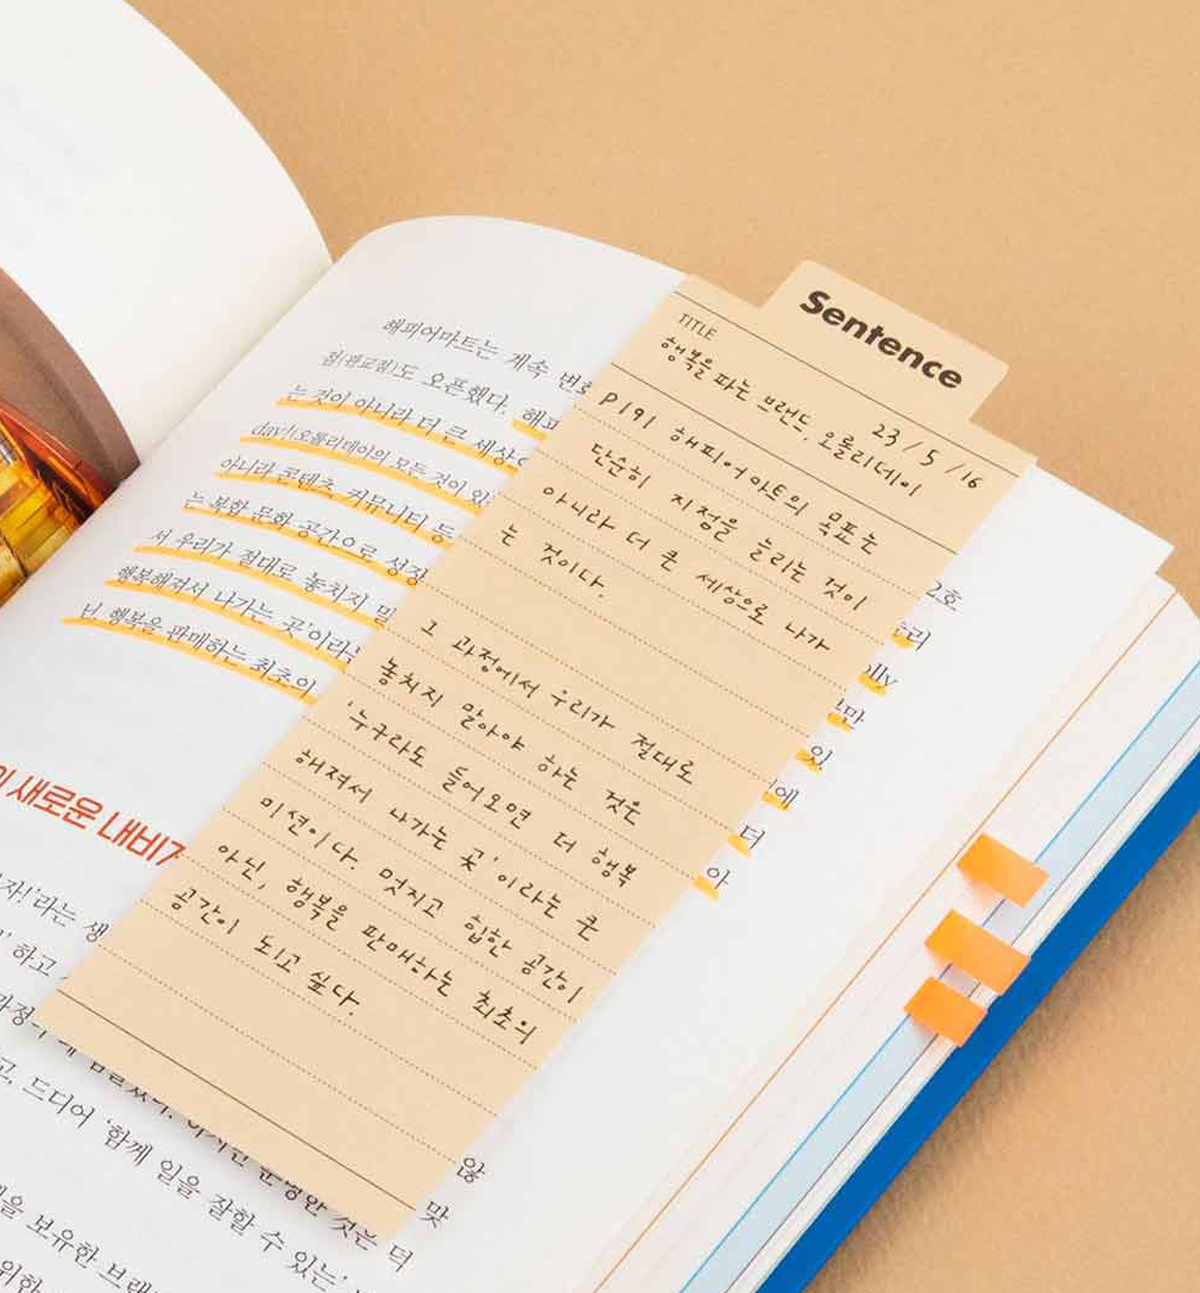 Sentence
TITLE
행복을 파는 브랜드, 오롤리데이
23/5/16
P191 해피어마트의 목표는
단순히 지점을 늘리는 것이
아니라 더 큰 세상으로 나가
는 것이다.
그 과정에서 우리가 절대로
놓치지 말아야 하는 것은
'누구라도 들어오면 더 행복
해져서 나가는 곳'이라는 큰
미션이다. 멋지고 힙한 공간이
아닌, 행복을 판매하는 최초의
공간이 되고 싶다.
해피어마트는 계속 변
점(판교점)도 오픈했다. 해피
는 것이 아니라 더 큰 세상으
day!:오롤리데이의 모든 것이
아니라 콘텐츠, 커뮤니티 등
는 복합 문화 공간으로 성장
서 우리가 절대로 놓치지 말
행복해져서 나가는 곳'이라는
닌 행복을 판매하는 최초의
2호
olly
만
있
에
더
아
새로운 내비
자!'라는 생
하고
고, 드디어 '함께 일을 잘할 수 있는'
않
맞
것은 더
을 보유한 브랜
위한